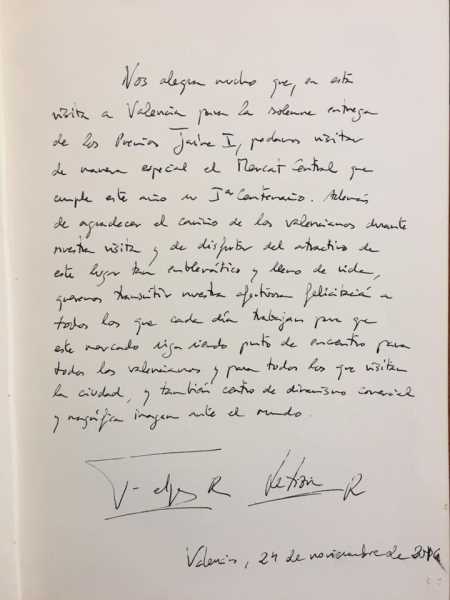 Nos alegra mucho que, en esta
visita a Valencia para la solemne entrega
de los Premios Jaime I, podamos visitar
de manera especial el Mercat Central que
cumple este año su Iᵉʳ Centenario. Además
de agradecer el cariño de los valencianos durante
nuestra visita y de disfrutar del atractivo de
este lugar tan emblemático y lleno de vida,
queremos transmitir nuestra afectuosa felicitación a
todos los que cada día trabajan para que
este mercado siga siendo punto de encuentro para
todos los valencianos y para todos los que visitan
la ciudad, y también centro de dinamismo comercial
y magnífica imagen ante el mundo.
Felipe R Letizia R
Valencia, 24 de noviembre de 2016